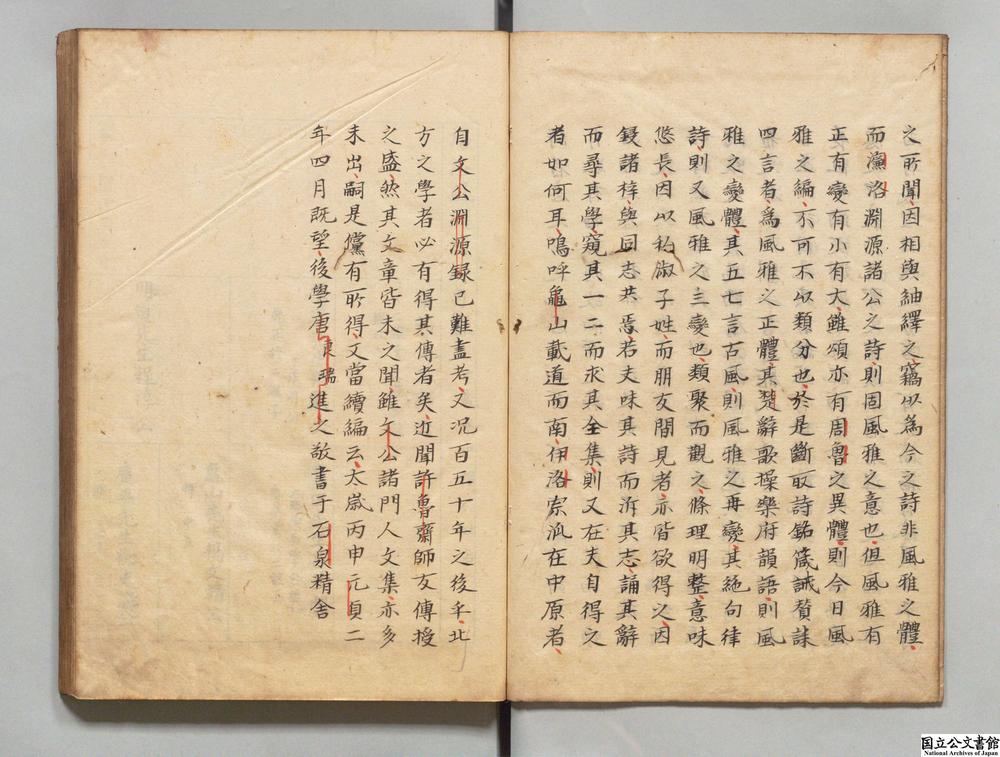 之所聞因相與紬繹之竊以為今之詩非風雅之體
而濂洛淵源諸公之詩則固風雅之意也但風雅有
正有變有小有大雖頌亦有周魯之異體則今日風
雅之編不可不以類分也於是斷取詩銘箴誡贊誄
四言者為風雅之正體其楚辭歌操樂府韻語則風
雅之變體其五七言古風則風雅之再變其絕句律
詩則又風雅之三變也類聚而觀之條理明整意味
悠長因以私淑子姓而朋友間見者亦皆欲得之因
鋟諸梓與同志共焉若夫味其詩而泝其志誦其辭
而尋其學窺其一二而求其全集則又在夫自得之
者如何耳嗚呼龜山載道而南伊洛宗派在中原者
自文公淵源録已難盡考又况百五十年之後乎北
方之學者必有得其傳者矣近聞許魯齋師友傳授
之盛然其文章皆未之聞雖文公諸門人文集亦多
未出嗣是儻有所得又當續編云太嵗丙申元貞二
年四月既望後學唐良瑞進之敬書于石泉精舍
国立公文書館
National Archives of Japan